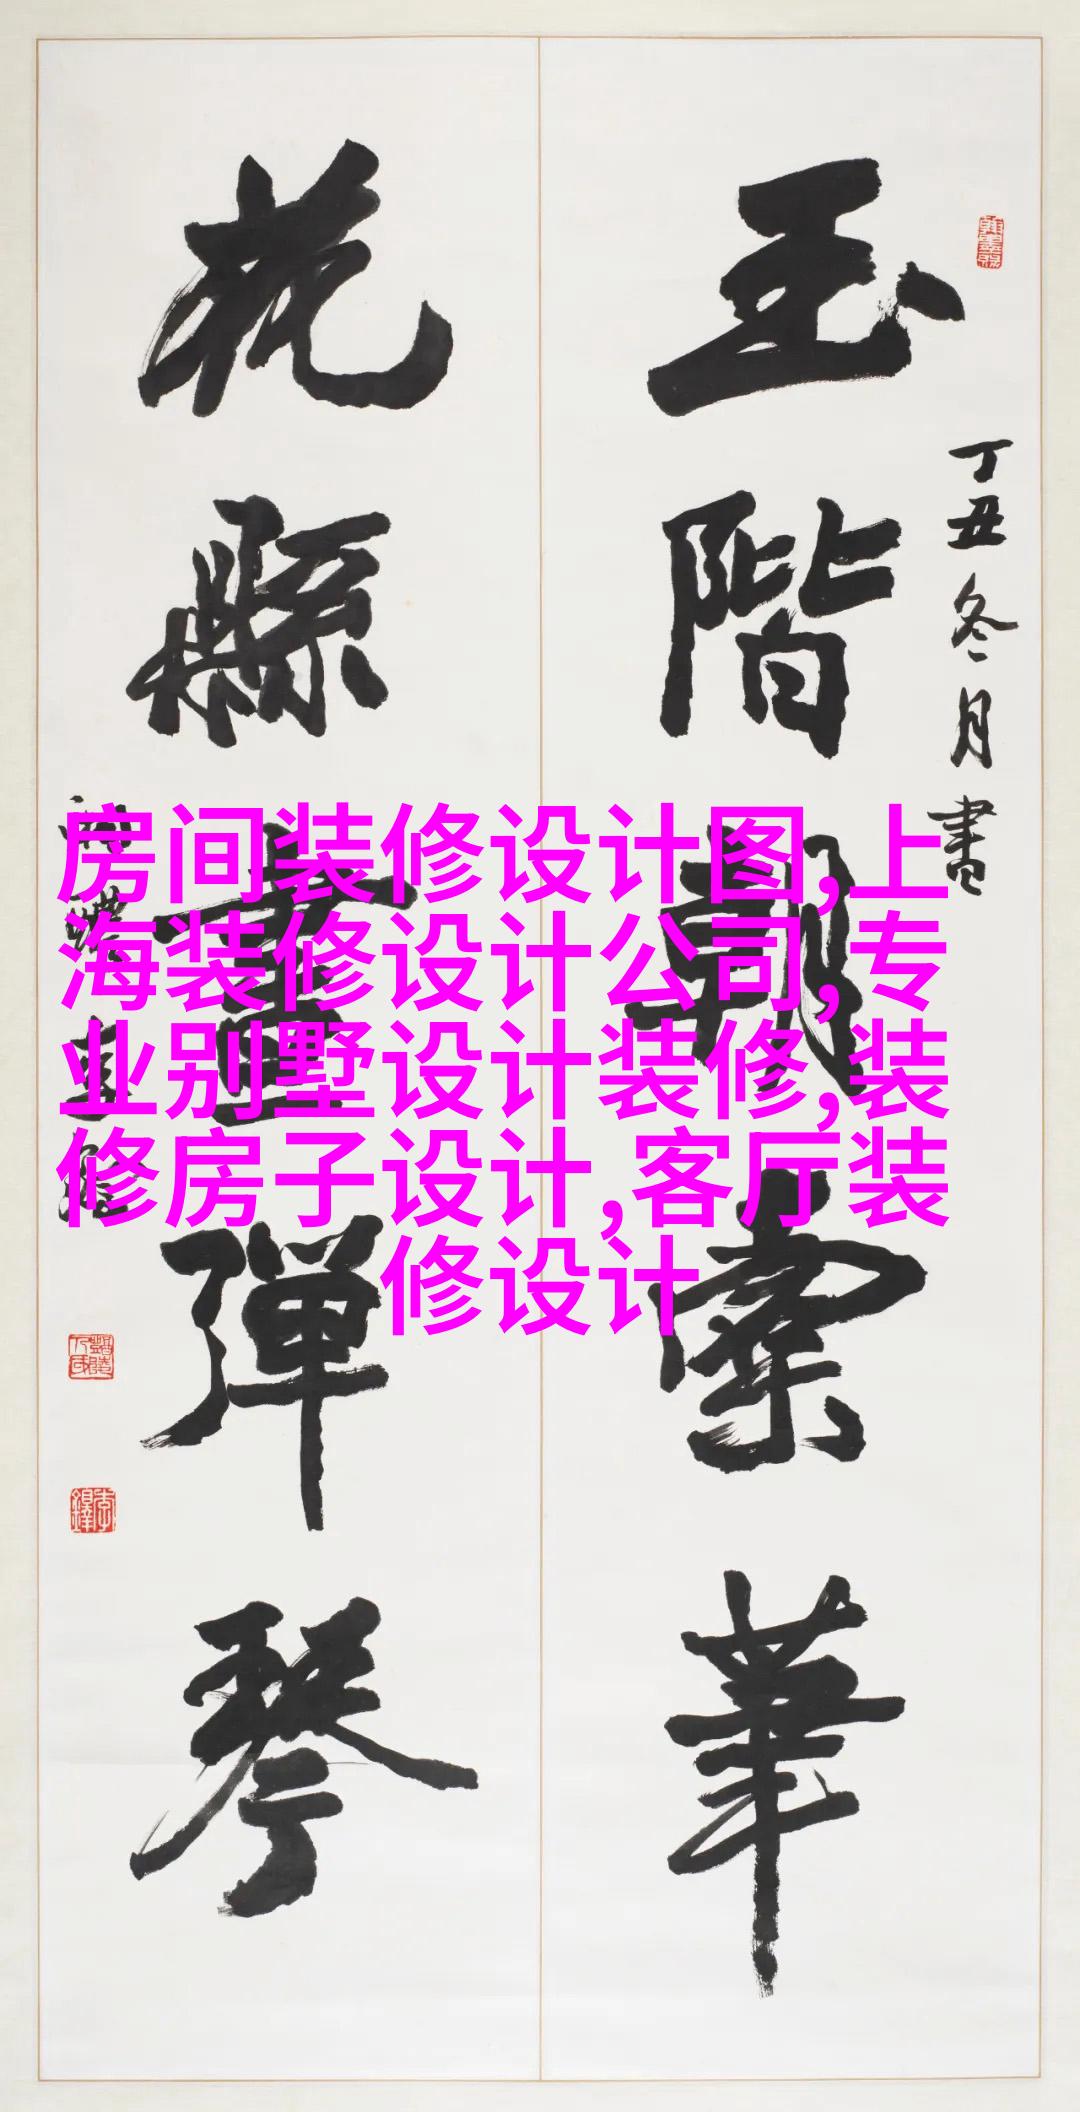 玉階朝紫華
丁丑冬月書
花縣畫彈琴
房间装修设计图,上
海装修设计公司,专
业别墅设计装修,装
修房子设计,客厅装
修设计